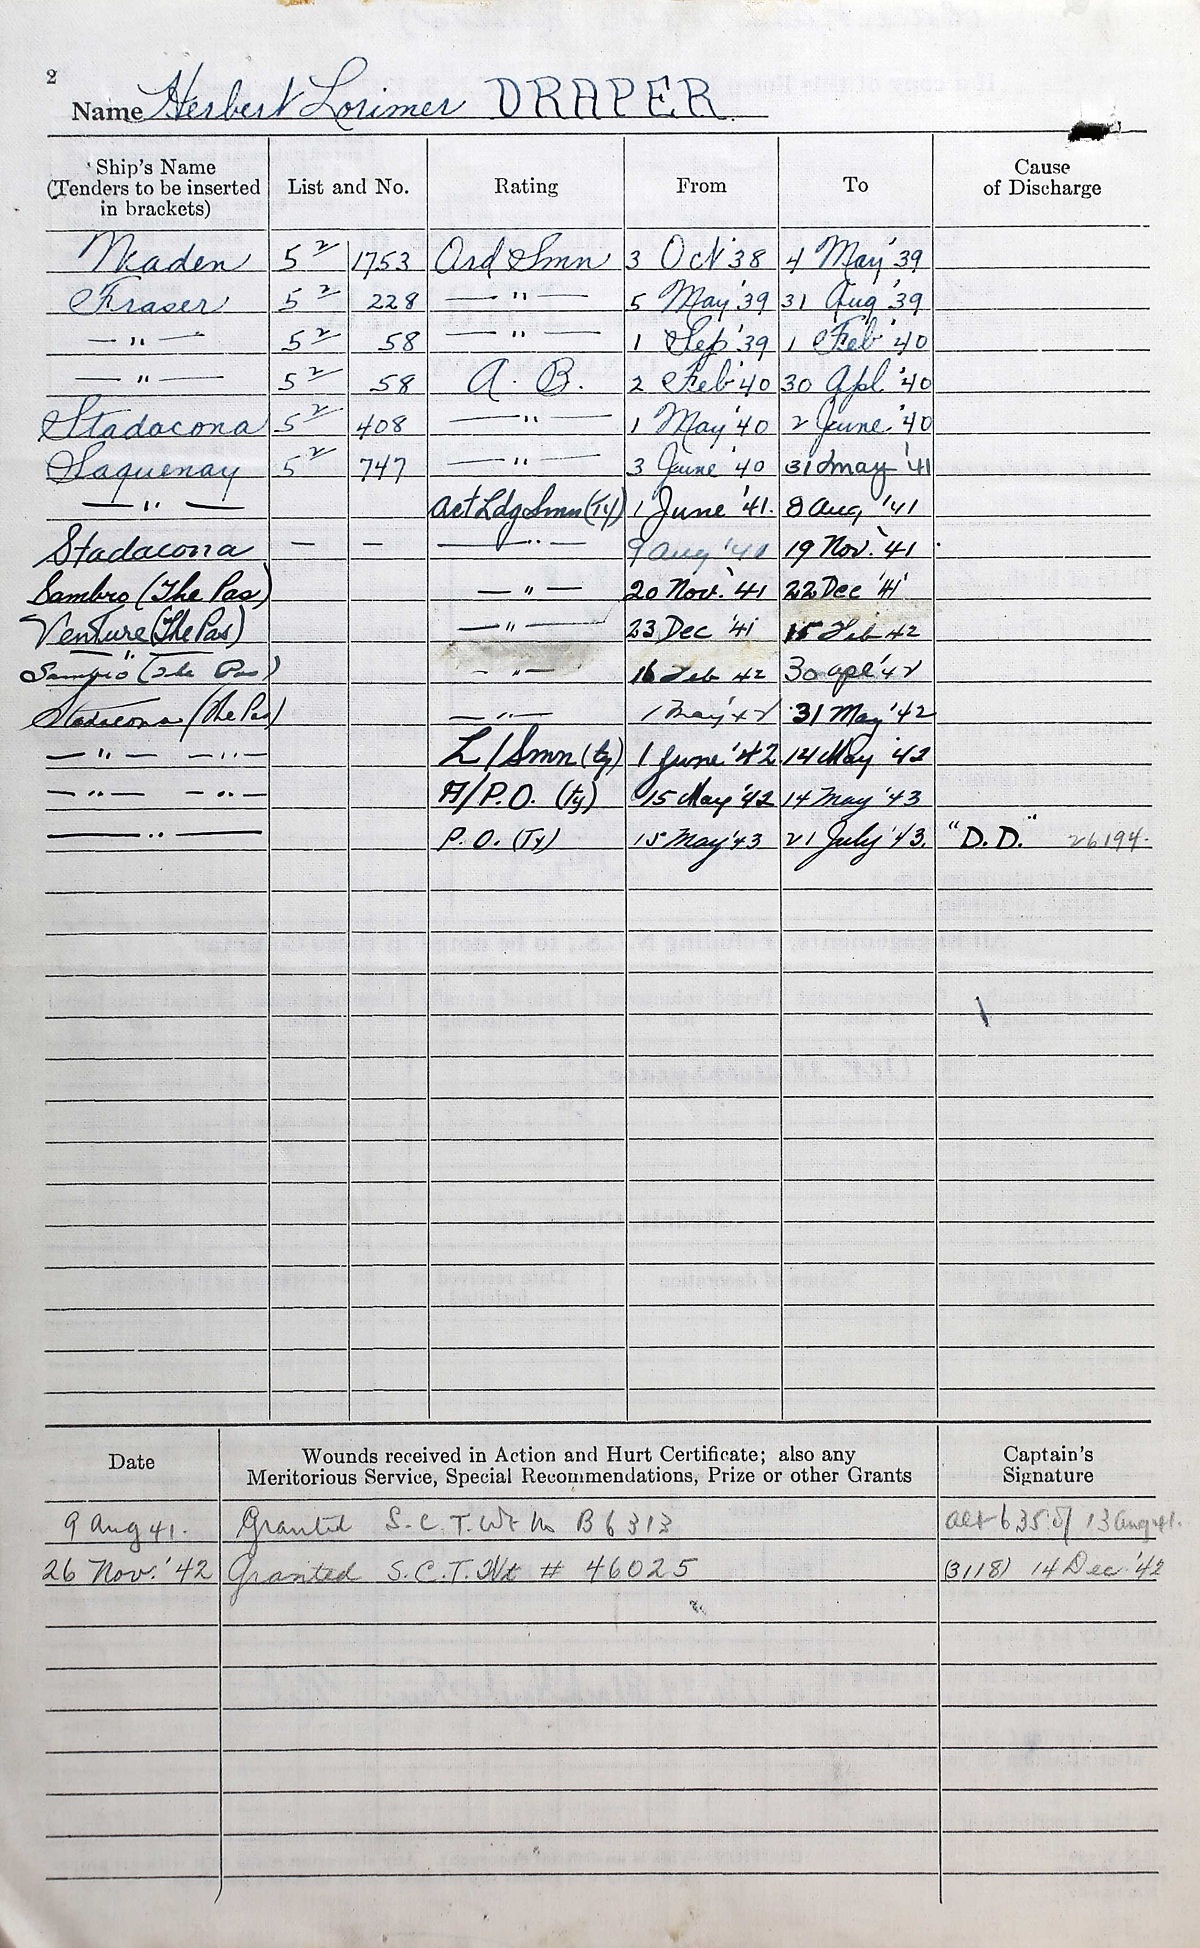 2
Name Herbert Lorimer DRAPER
Ship's Name (Tenders to be inserted in brackets) List and No. Rating From To Cause of Discharge
Naden 5² 1753 Ord Smn 3 Oct '38 4 May '39
Fraser 5² 228 — " — 5 May '39 31 Aug '39
— " — 5² 58 — " — 1 Sep '39 1 Feb '40
— " — 5² 58 A. B. 2 Feb '40 30 Apl '40
Stadacona 5² 408 — " — 1 May '40 2 June '40
Saguenay 5² 747 — " — 3 June '40 31 May '41
— " — Act Ldg Smn (Ty) 1 June '41. 8 Aug '41
Stadacona — — — " — 9 Aug '41 19 Nov. '41
Sambro (The Pas) — " — 20 Nov. '41 22 Dec '41
Venture (The Pas) — " — 23 Dec '41 15 Feb 42
Sambro (The Pas) — " — 16 Feb 42 30 Apl '42
Stadacona (The Pas) — " — 1 May '42 31 May '42
— " — — " — L/Smn (ty) 1 June '42 14 May '42
— " — — " — A/P.O. (ty) 15 May '42 14 May '43
— " — P.O. (Ty) 15 May '43 21 July '43. "D.D." 26194.
Date Wounds received in Action and Hurt Certificate; also any Meritorious Service, Special Recommendations, Prize or other Grants Captain's Signature
9 Aug 41. Granted S.C.T. Wt No B6313 635 of 13 Aug 41.
26 Nov. '42 Granted S.C.T. Wt # 46025 (3118) 14 Dec '42